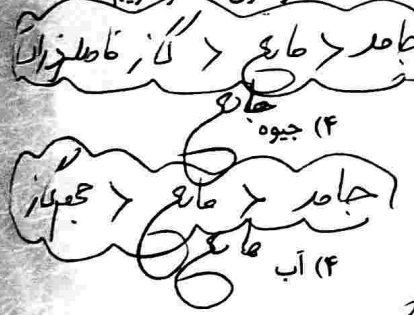 جامد < مایع < گاز فاصله ذرات
مایع
۴) جیوه
جامد < مایع < گاز حجم
مایع
۴) آب